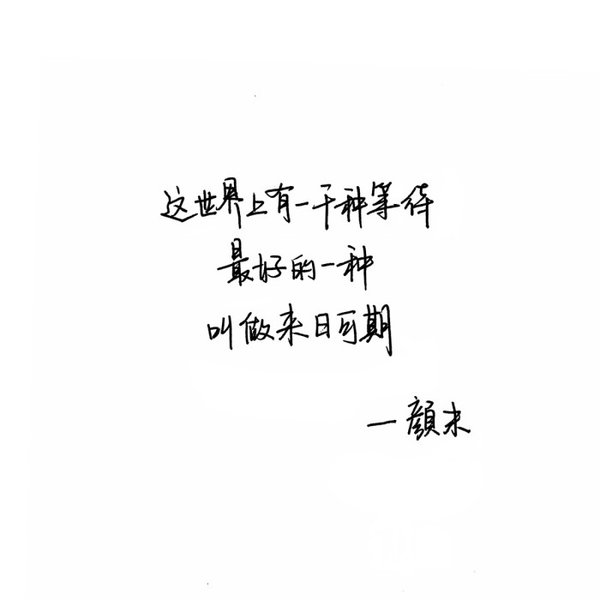 这世界上有一千种等待
最好的一种
叫做来日可期
—顏末